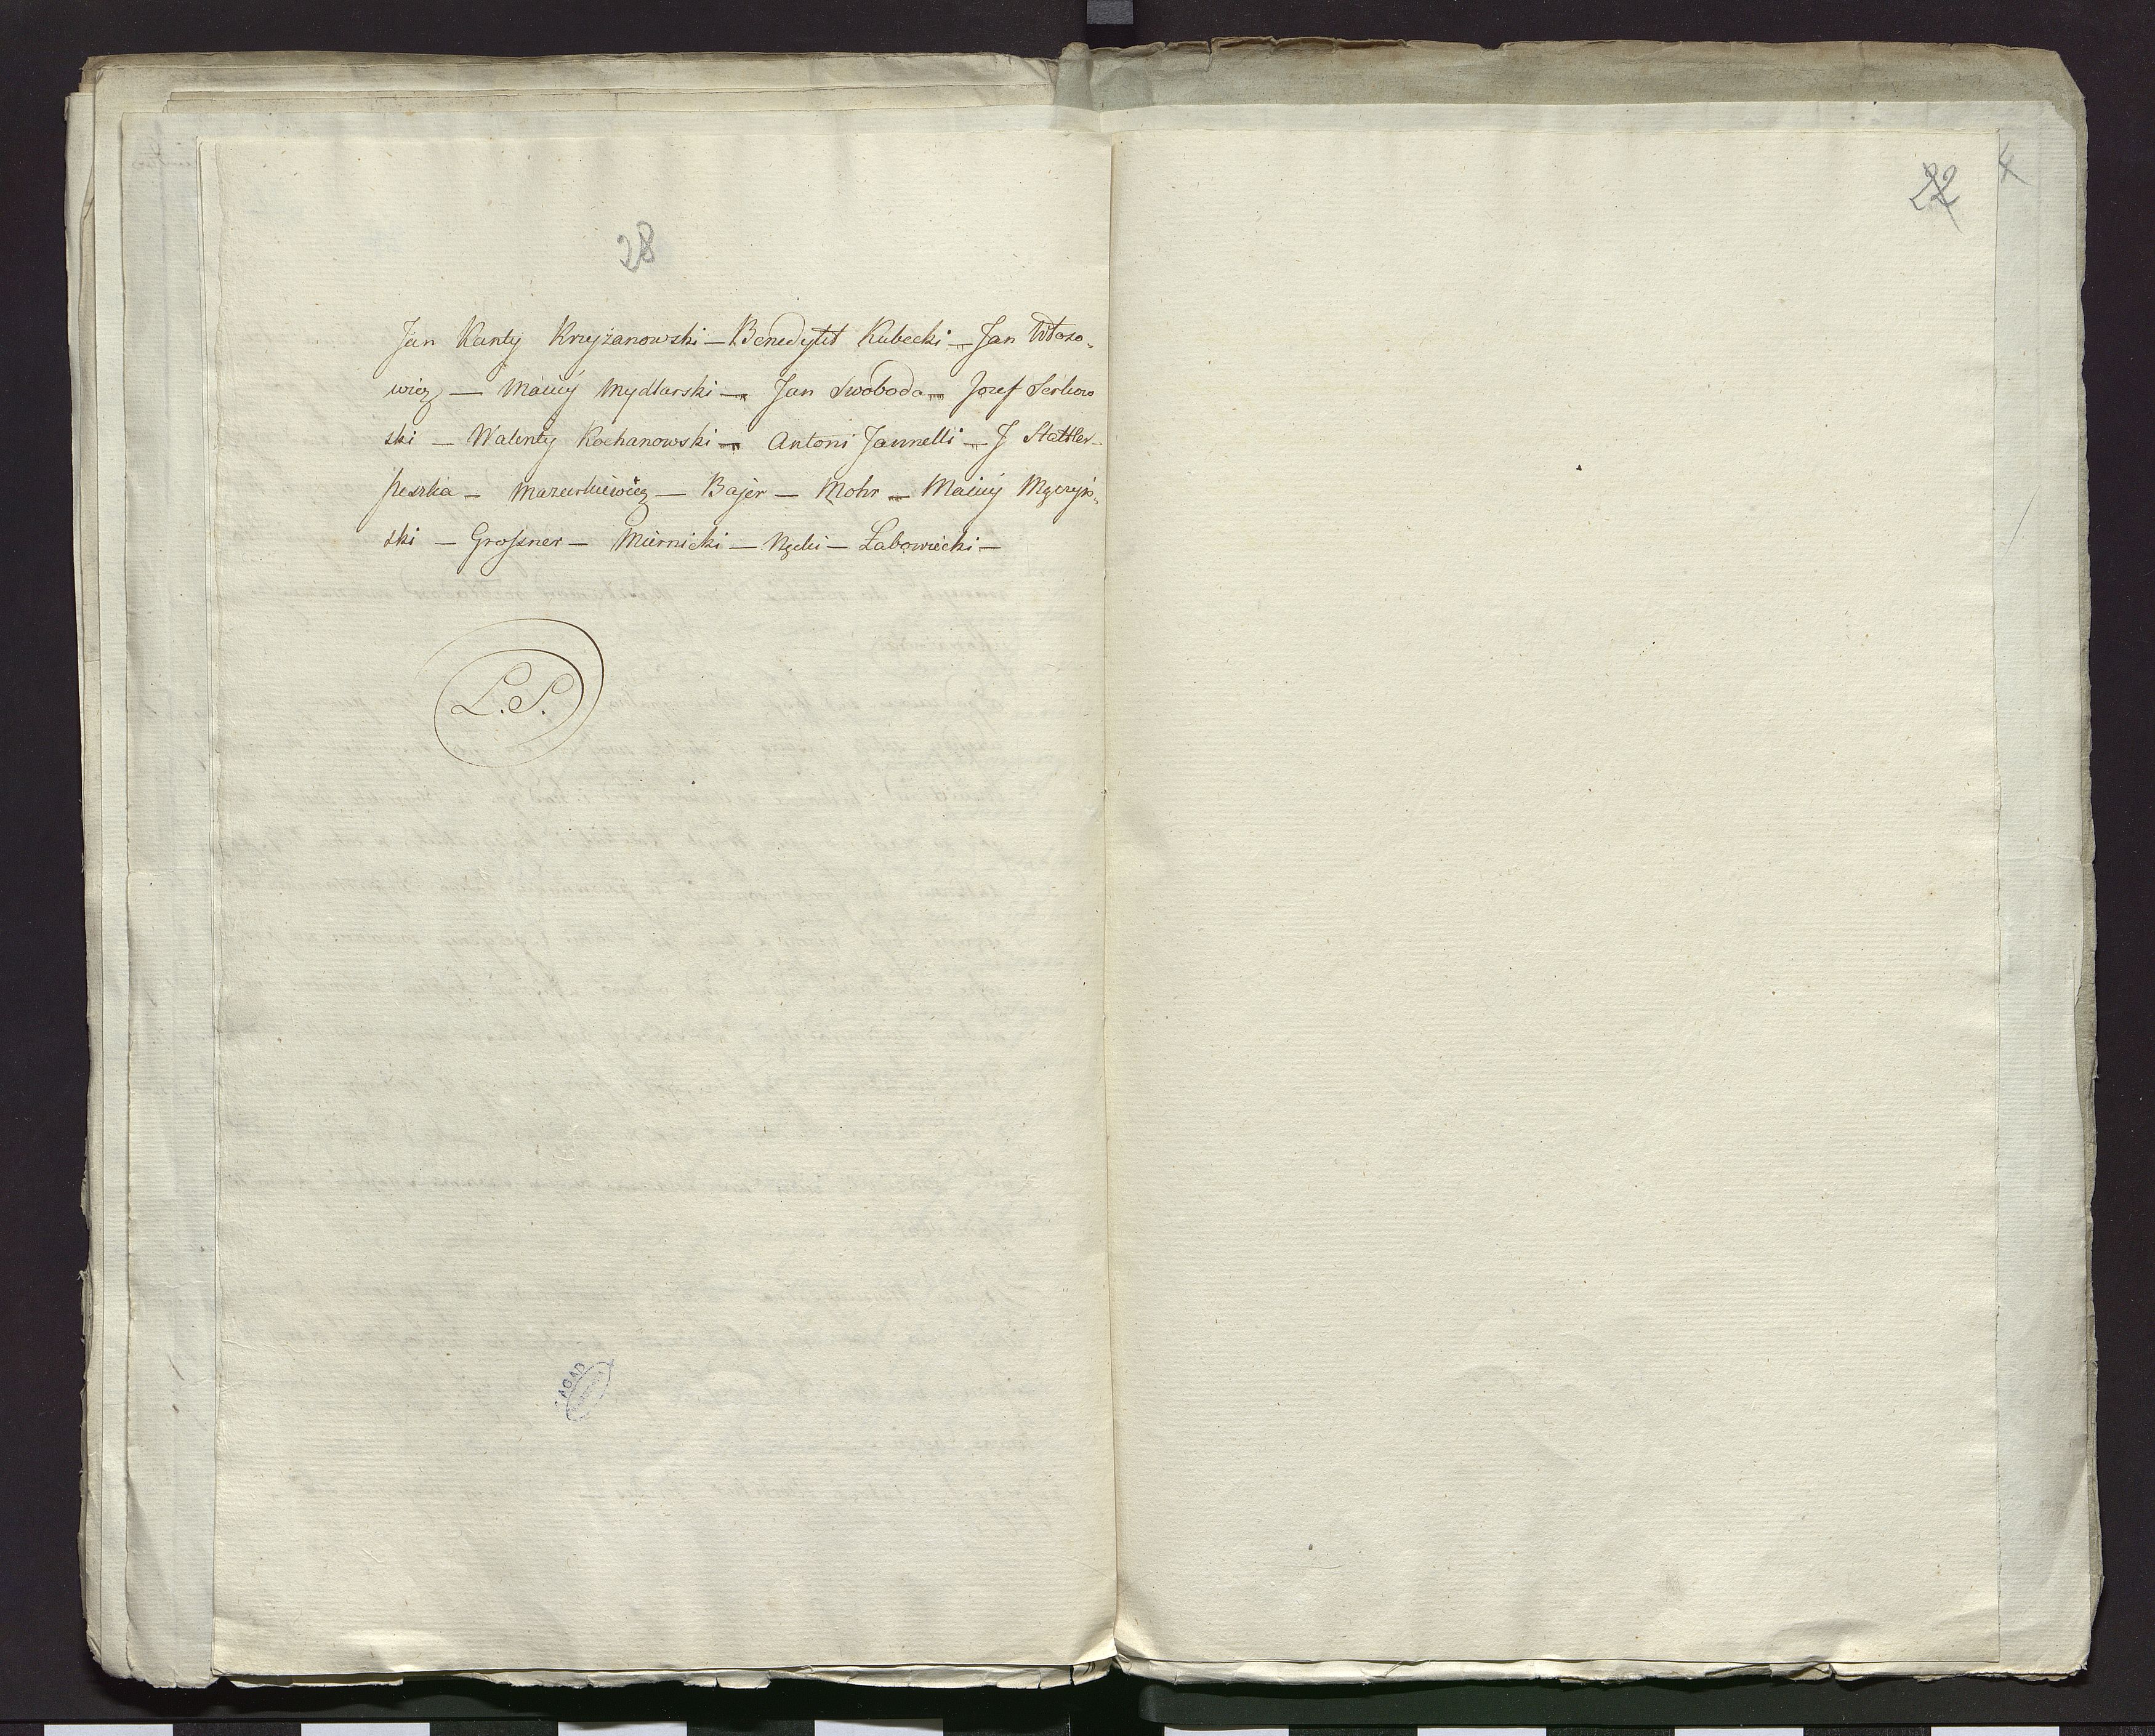 28
Jan Kanty Krzyżanowski – Benedykt Kubecki – Jan Włoso„
wicz – Maciey Mydlarski – Jan Swoboda – Jozef Serkow
ski – Walenty Kochanowski – Antoni Jannelli – J. Stattler –
Peszka – Mazurkiewicz – Bajer – Mohr – Maciey Męczyń„
ski – Groszner – Miernicki – – Łabowiecki –
L. S.
AGAD
22
4